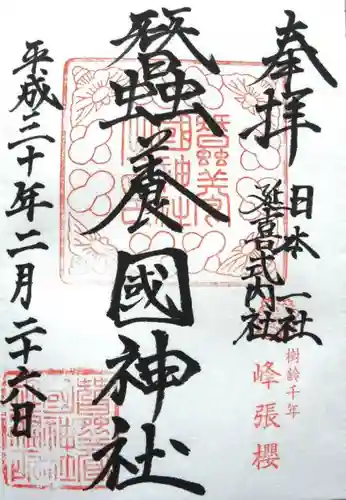 奉拝
日本一社
延喜式内社
樹齢千年
峰張櫻
蠶養國神社
平成三十年二月二十六日